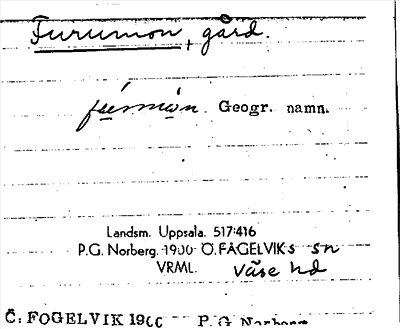 Furumon, gård.
furmon. Geogr. namn.
Landsm. Uppsala. 517:416
P.G. Norberg. 1900 Ö. FÅGELVIKs sn
VRML. Väse hd
Ö: FOGELVIK 19 P.G. Norberg